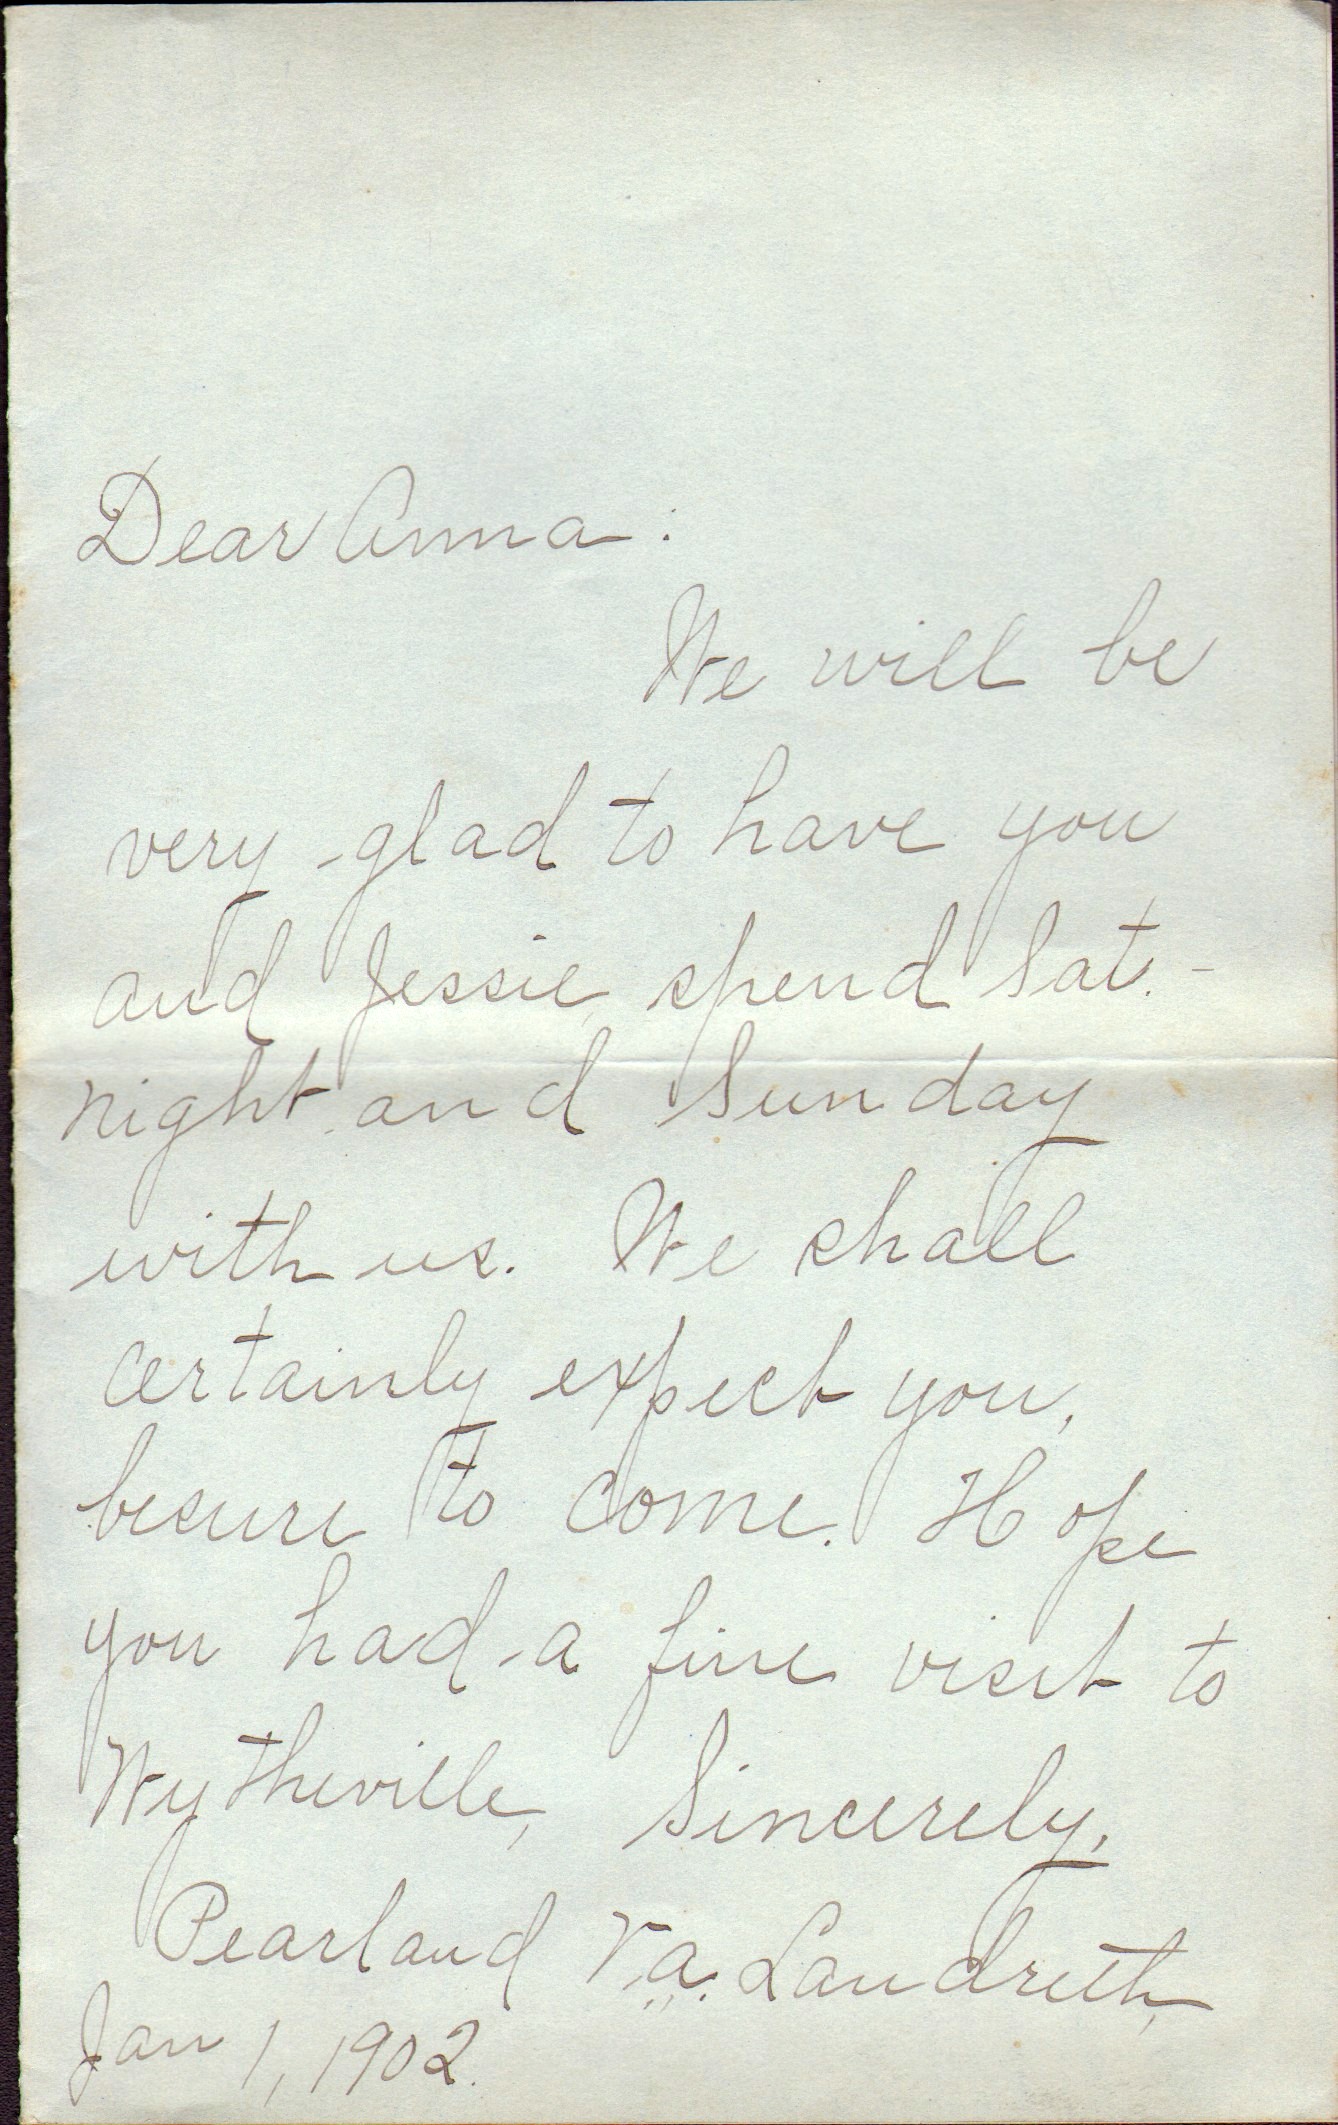 Dear Anna:
We will be
very glad to have you
and Jessie spend Sat.-
night and Sunday
with us. We shall
certainly expect you,
besure to come. Hope
you had a fine visit to
Wytheville, Sincerely,
Pearl and Va. Landreth,
Jan 1, 1902.